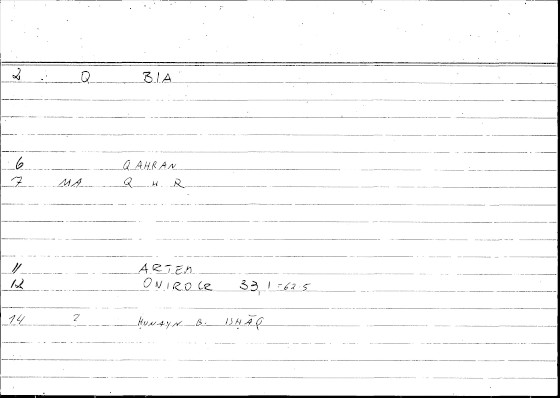 2 . Q BIA
6 QAHRAN
7 MA Q H R
11 ARTEM
12 ONIROCR 33,1-62.5
14 2 HUNAYN B. ISHĀQ